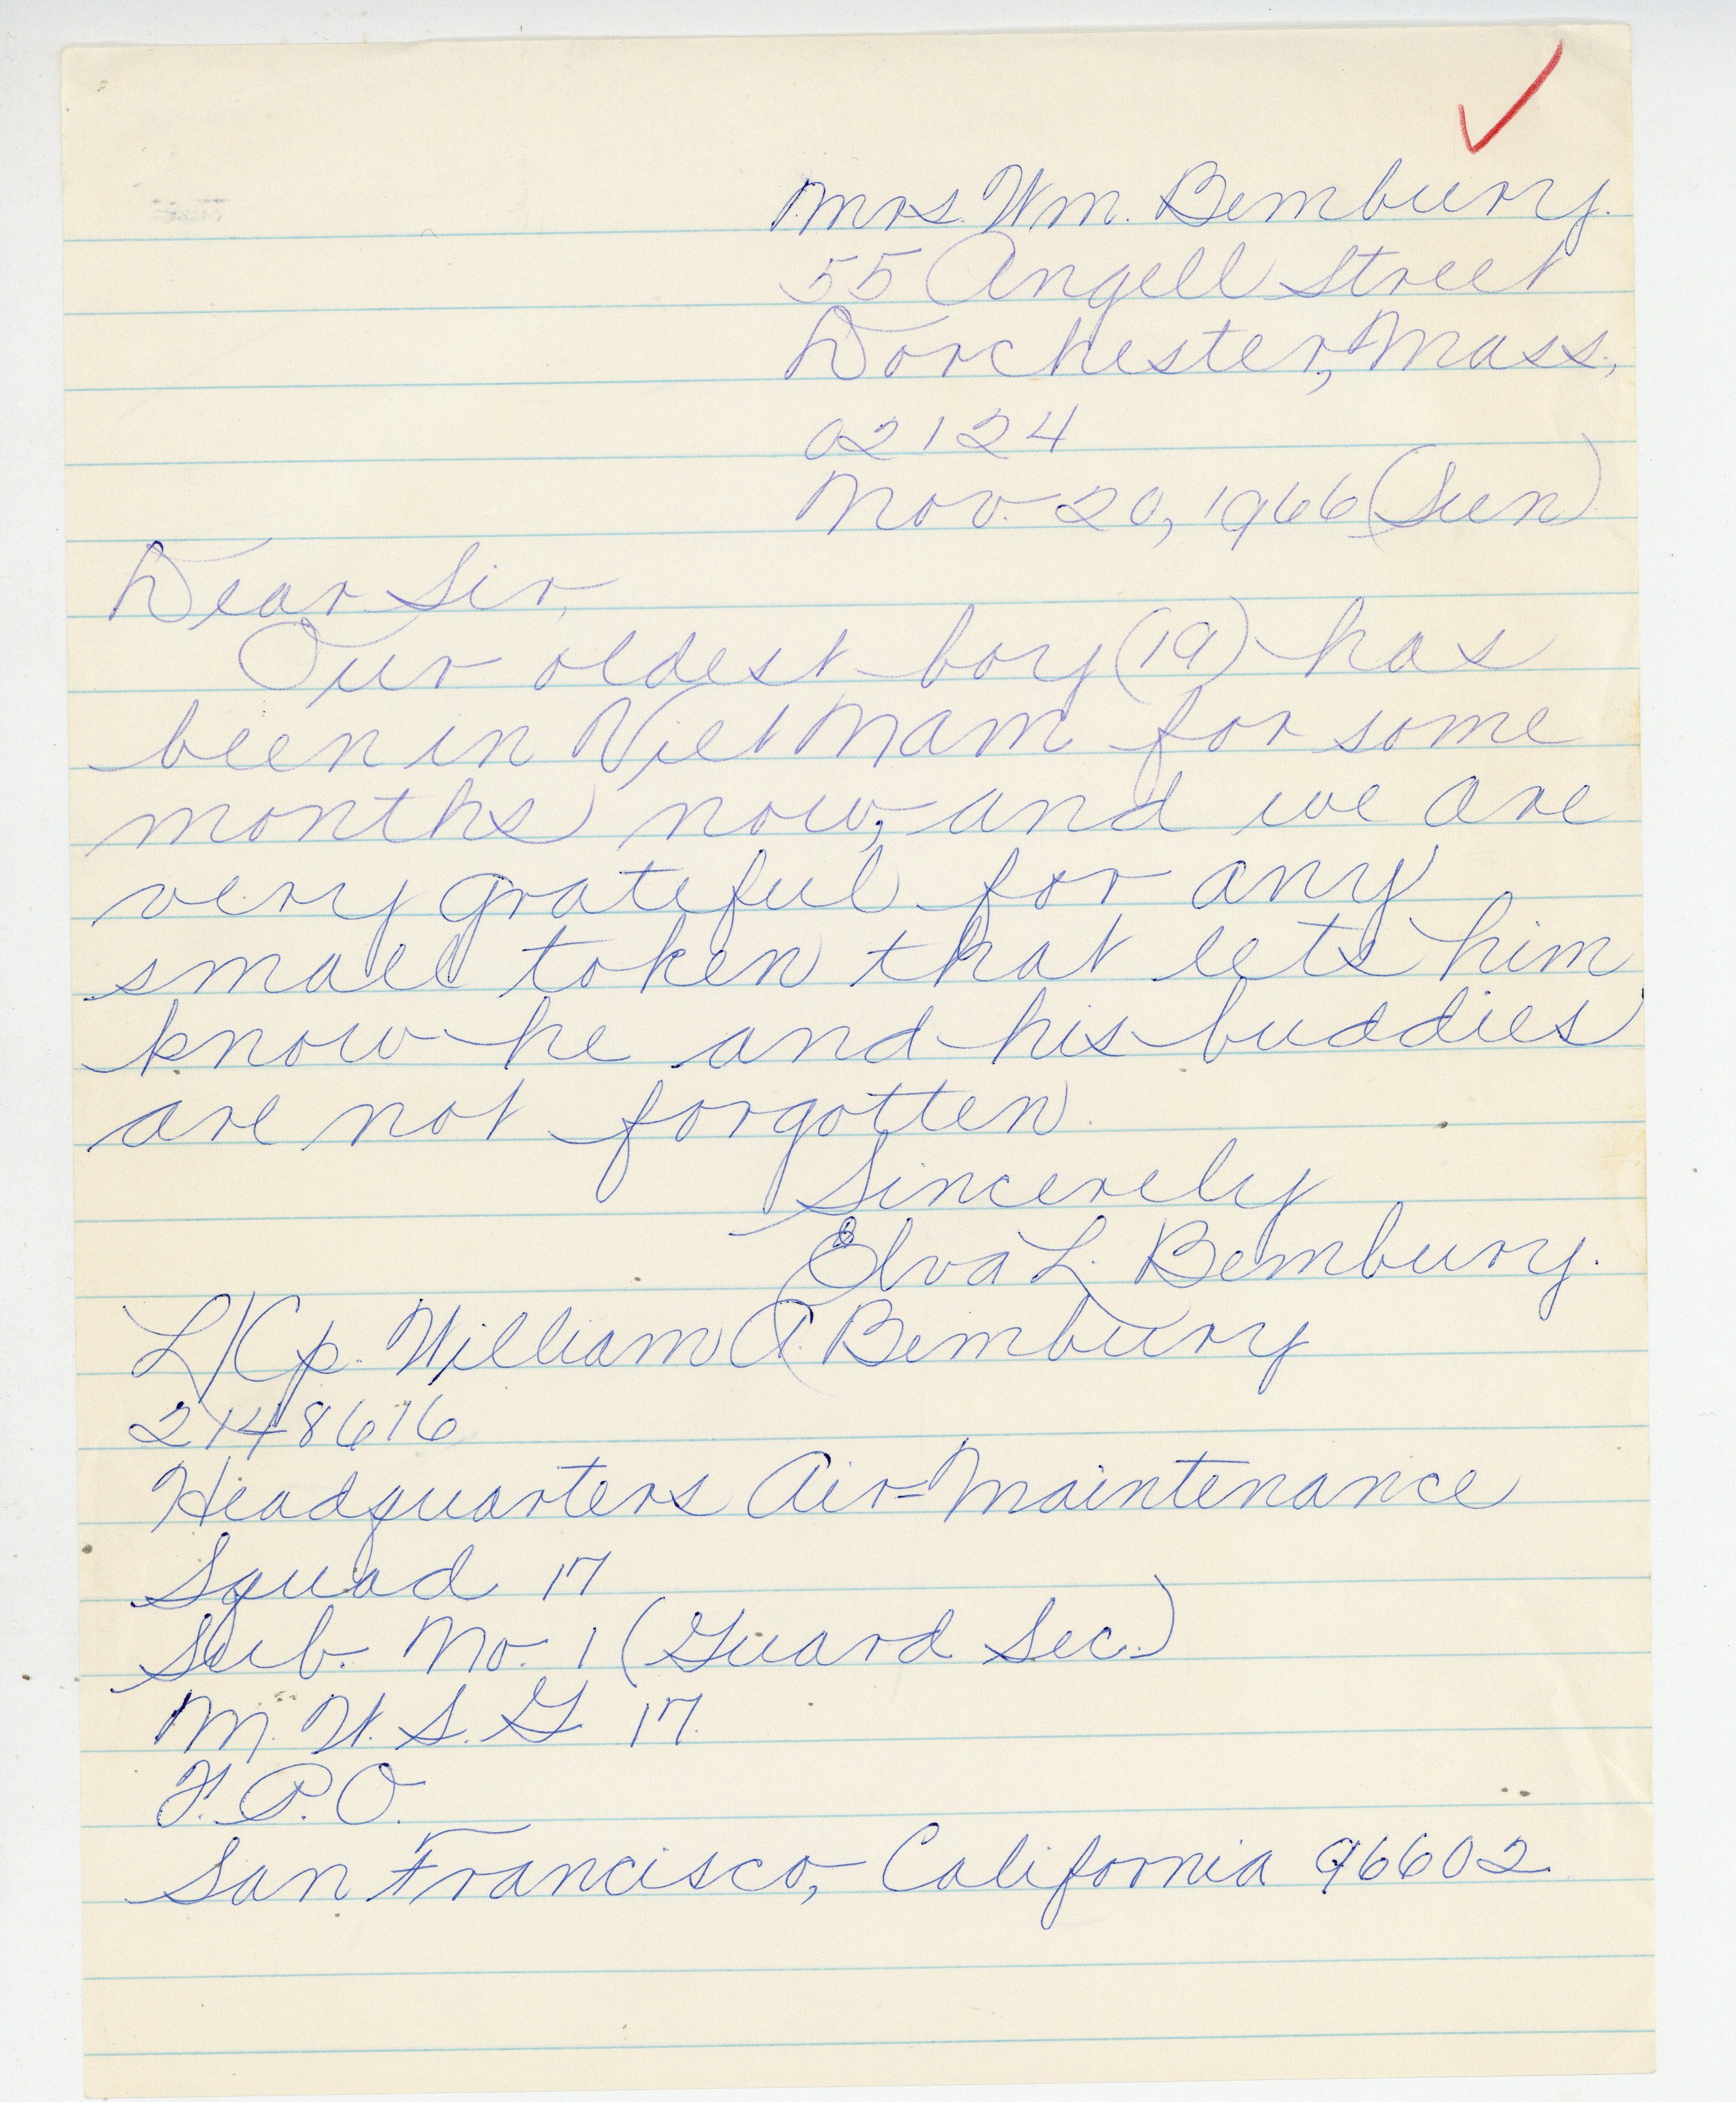 Mrs. Wm. Bembury.
55 Angell Street
Dorchester, Mass.
02124
Nov. 20, 1966 (Sun)
Dear Sir,
Our oldest boy (19) has
been in Viet Nam for some
months now, and we are
very grateful for any
small token that lets him
know he and his buddies
are not forgotten.
Sincerely
Elva L. Bembury.
L/Cp. William A. Bembury
2148616
Headquarters Air=Maintenance
Squad 17
Sub. No. 1 (Guard Sec.)
M. W. S. G 17.
F. P. O.
San Francisco, California 96602